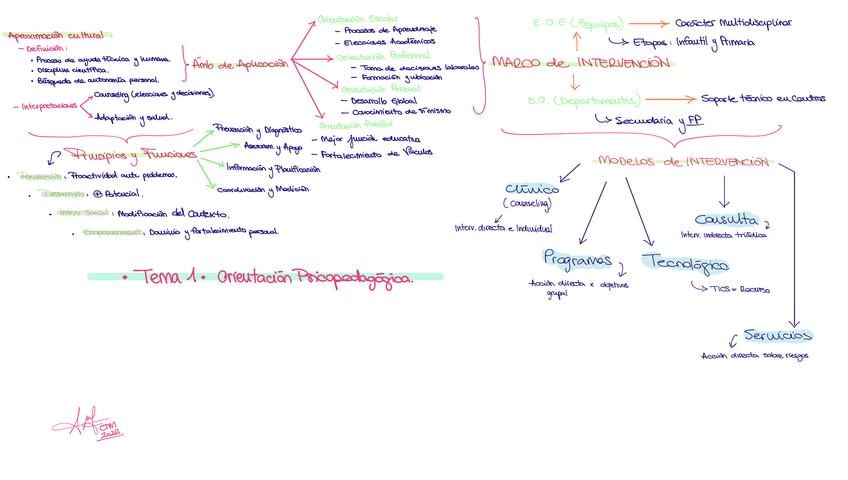 Aproximación cultural
- Definición:
• Proceso de ayuda técnica y humana.
• Disciplina científica.
• Búsqueda de autonomía personal.
- Interpretaciones
Counseling (elecciones y decisiones).
Adaptación y salud.
Ámb. de Aplicación
Orientación Escolar
- Procesos de Aprendizaje
- Elecciones Académicas
Orientación Profesional
- Toma de decisiones laborales
- Formación y ubicación
Orientación Personal
- Desarrollo Global
- Conocimiento de sí mismo
Orientación Familiar
- Mejor función educativa
- Fortalecimiento de Vínculos
Principios y Funciones
Prevención y Diagnóstico
Asesoram. y Apoyo
Información y Planificación
Coordinación y Mediación
• Prevención: Proactividad ante problemas.
• Desarrollo: + Potencial.
• Interv. Social: Modificación del Contexto.
• Empowerment: Dominio y fortalecimiento personal.
MARCO de INTERVENCIÓN
E.O.E (Equipos)
Carácter Multidisciplinar
Etapas: Infantil y Primaria
D.O. (Departamentos)
Soporte técnico en Centros
Secundaria y FP
MODELOS de INTERVENCIÓN
Clínico
(Counseling)
Interv. directa e Individual
Programas
Acción directa x objetivos
grupal
Tecnológico
TICS = Recurso
Consulta
Interv. indirecta triádica
Servicios
Acción directa sobre riesgos
• Tema 1 • Orientación Psicopedagógica.